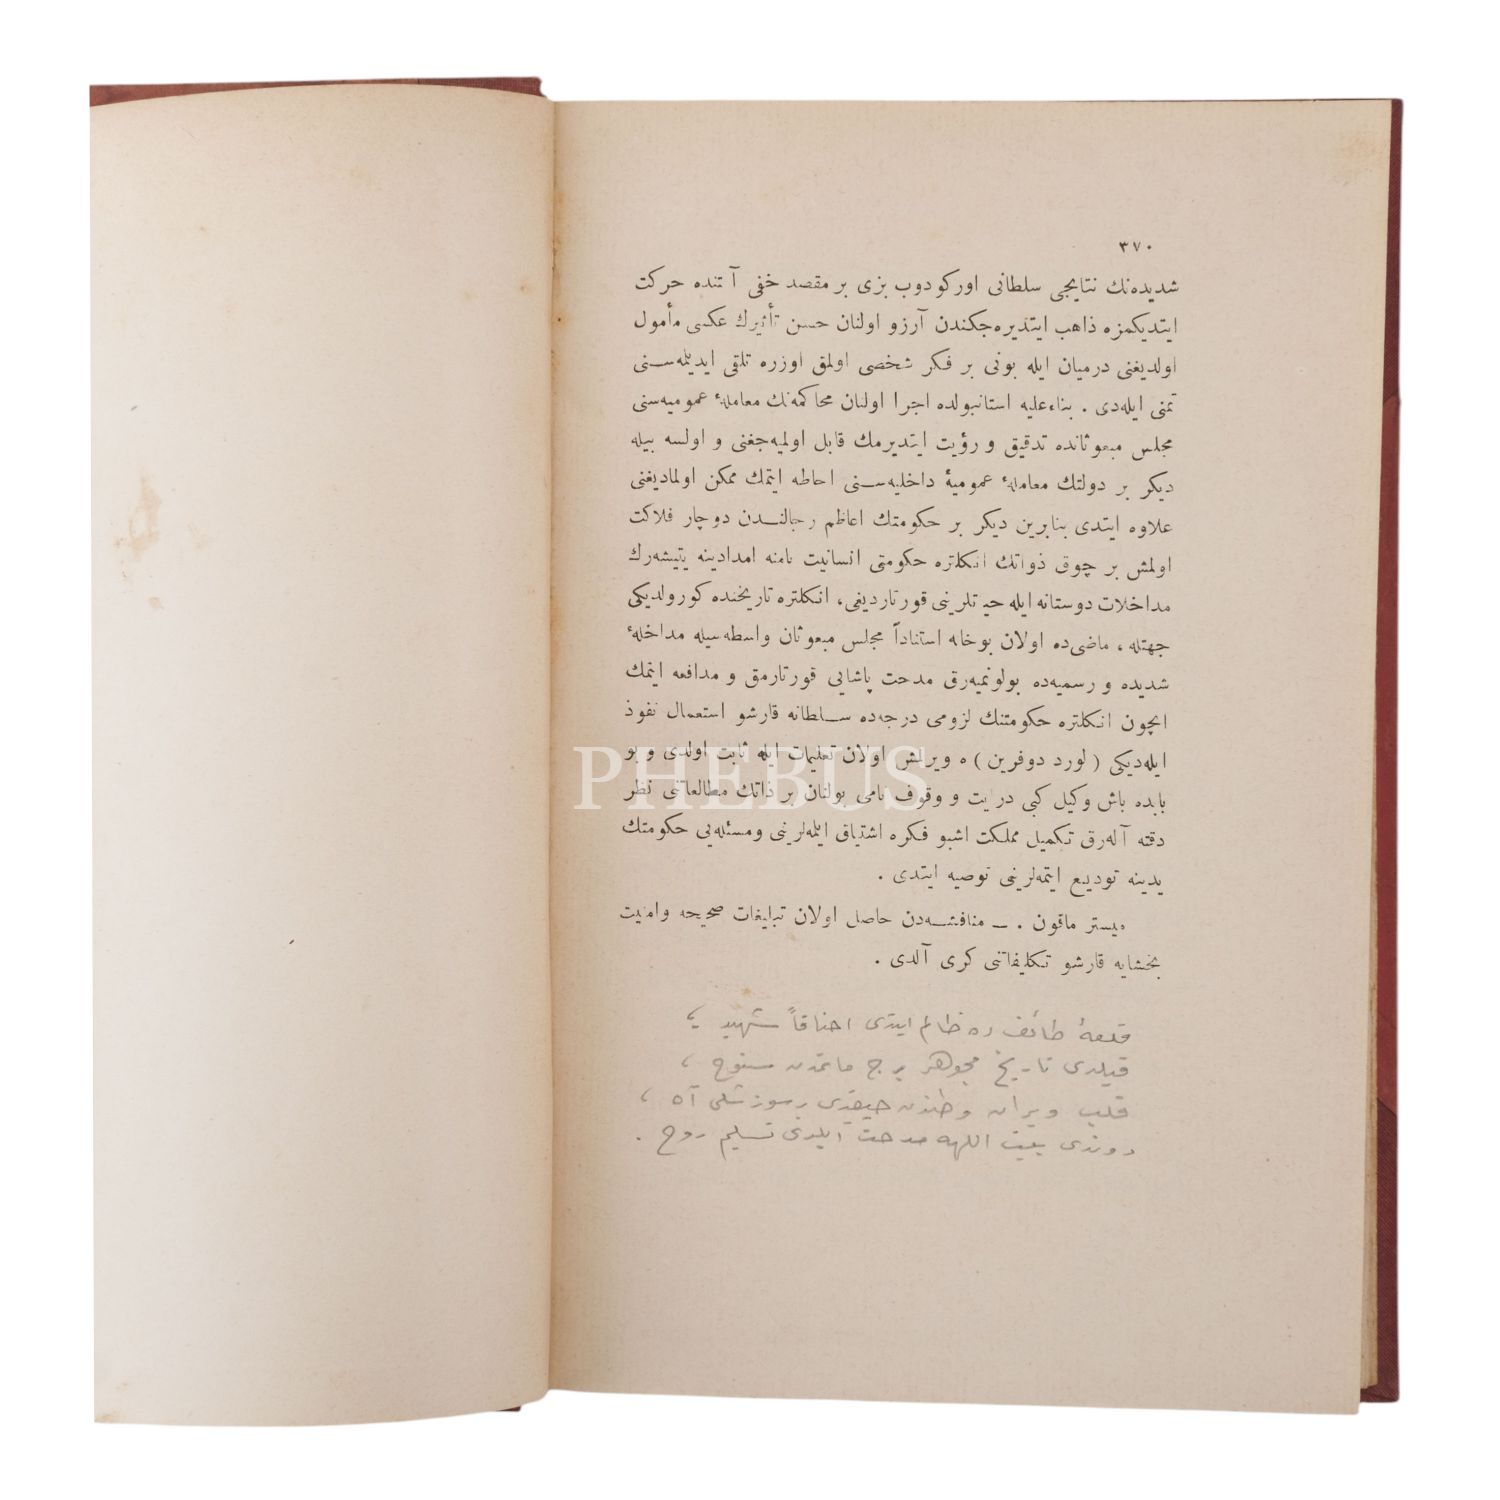 ٣٧٠
شدیده‌نك نتایجی سلطانی اوركودوب بزی بر مقصد خفی آ تنده حركت
ایتدیكمزه ذاهب ایتدیره‌جكندن آرزو اولنان حسن تأثیرك عكسی مأمول
اولدیغنی درمیان ایله بونی بر فكر شخصی اولمق اوزره تلقی ایدیلمه‌سـنی
تمنی ایله‌دی . بناءعلیه استانبولده اجرا اولنان محاكمه‌نك معاملهٔ عمومیه‌سنی
مجلس مبعوثانده تدقیق و رؤیت ایتدیرمك قابل اولمیه‌جغنی و اولسه بیله
دیكر بر دولتك معاملهٔ عمومیهٔ داخلیه‌سـنی احاطه ایتمك ممكن اولمادیغنی
علاوه ایتدی بنابرین دیكر بر حكومتك اعاظم رجالنـدن دوچار فلاكت
اولمش بر چوق ذواتك انكلتره حكومتی انسانیت نامنه امدادینه یتیشه‌رك
مداخلات دوستانه ایله حیاتلرینی قورتاردیغی، انكلتره تاریخنده كورولدیكی
جهتله ، ماضی‌ده اولان بوحاله استناداً مجلس مبعوثان واسطه‌سیله مداخلهٔ
شدیده و رسمیه‌ده بولونمیه‌رق مدحت پاشایی قورتارمق و مدافعه ایتمك
ایچون انكلتره حكومتنك لزومی درجه‌ده سـلطانه قارشو استعمال نفوذ
ایله‌دیكی ( لورد دوفرین ) ه ویرلمش اولان تعلیمات ایله ثابت اولدی و بو
بابده باش وكیل كبی درایت و وقوف تامی بولنان بر ذاتك مطالعاتنی نظر
دقته آله‌رق تكمیل مملكت اشبو فكره اشتیاق ایلمه‌لرینی ومسئله‌یی حكومتك
یدینه تودیع ایتمه‌لرینی توصیه ایتدی .
میستر ماقون . ــ منافشـه‌دن حاصل اولان تبلیغات صحیحه وامنیت
بخشایه قارشو تكلیفاتنی كری آلدی .
قلعهٔ طائفده ظالم ایتدی اختاقاً شهید ،
قیلدی تاریخ مجوهر برج ماتمدن سنوح ،
قلب ویران وطندن چیقدی سوزشلی آه ،
دوندی بیت اللهه مدحت ایلدی تسلیم روح .
PHEBUS